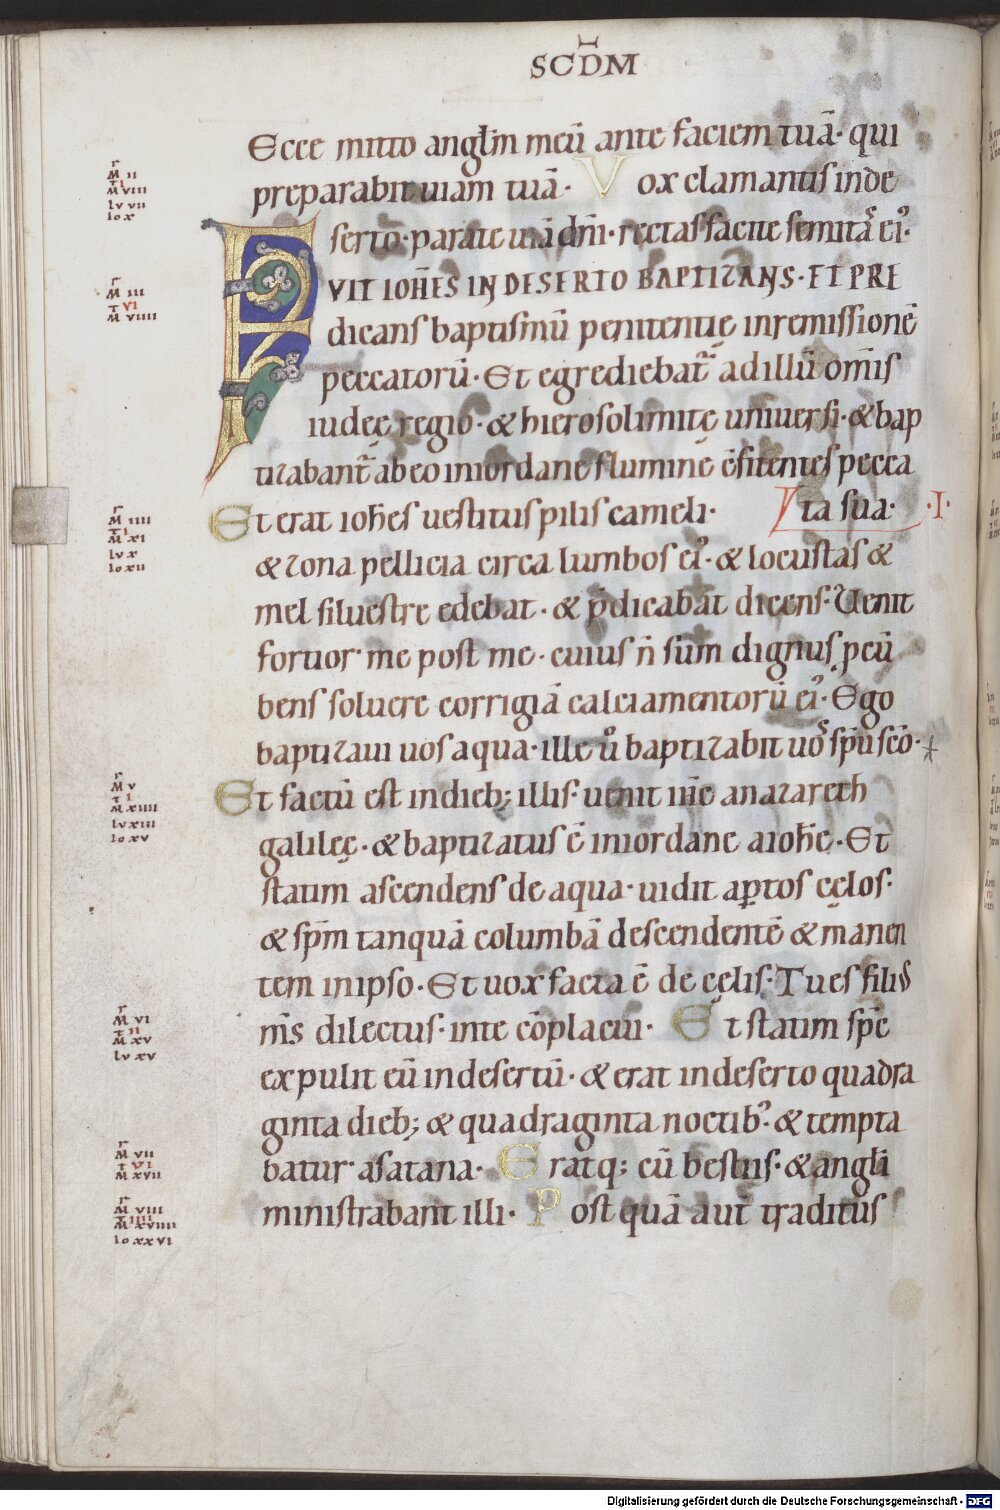 SCDM
Ecce mitto angl̄m meū ante faciem tuā· qui
preparabit uiam tuā· Vox clamantis inde
serto· parate uiā dn̄i· rectas facite semitas ei᾿·
FVIT IOHĒS IN DESERTO BAPTIZANS· ET PRE
dicans baptismū penitentię in remissionē
peccatorū· Et egrediebat᷑ ad illū om̄is
iudeę regio· & hierosolimitę uniuersi· & bap
tizabant᷑ ab eo in iordane flumine c̄fitentes pecca
ta sua· ·I·
Et erat ioh̄es uestitus pilis cameli·
& zona pellicia circa lumbos ei᾿· & locustas &
mel siluestre edebat· & p̄dicabat dicens· Uenit
fortior me post me· cuius n̄ sum dignus ꝓcū
bens soluere corrigiā calciamentorū ei᾿· Ego
baptizaui uos aqua· ille ů baptizabit uos sp̄u sc̄o·
Et factū est in dieb; illis· uenit ih̄c a nazareth
galileę· & baptizatus ē in iordane a ioh̄e· Et
statim ascendens de aqua· uidit ap̱tos cęlos·
& sp̄m tanquā columbā descendentē & manen
tem in ipso· Et uox facta ē de cęlis· Tu es filius
m̄s dilectus· in te cōplacui· Et statim sp̄c
expulit eū in desertū· & erat in deserto quadra
ginta dieb; & quadraginta noctib᾿· & tempta
batur a satana· Eratq; cū bestiis· & angl̄i
ministrabant illi· Post quā aut̄ traditus
M II
M VIII
lu VII
Io X
M III
VI
M VIIII
M IIII
I
M XI
lu X
Io XII
M V
I
M XIIII
lu XIII
Io XV
M VI
II
M XV
lu XV
M VII
VI
M XVII
M VIII
IIII
M XVIIII
Io XXVI
Digitalisierung gefördert durch die Deutsche Forschungsgemeinschaft - DFG